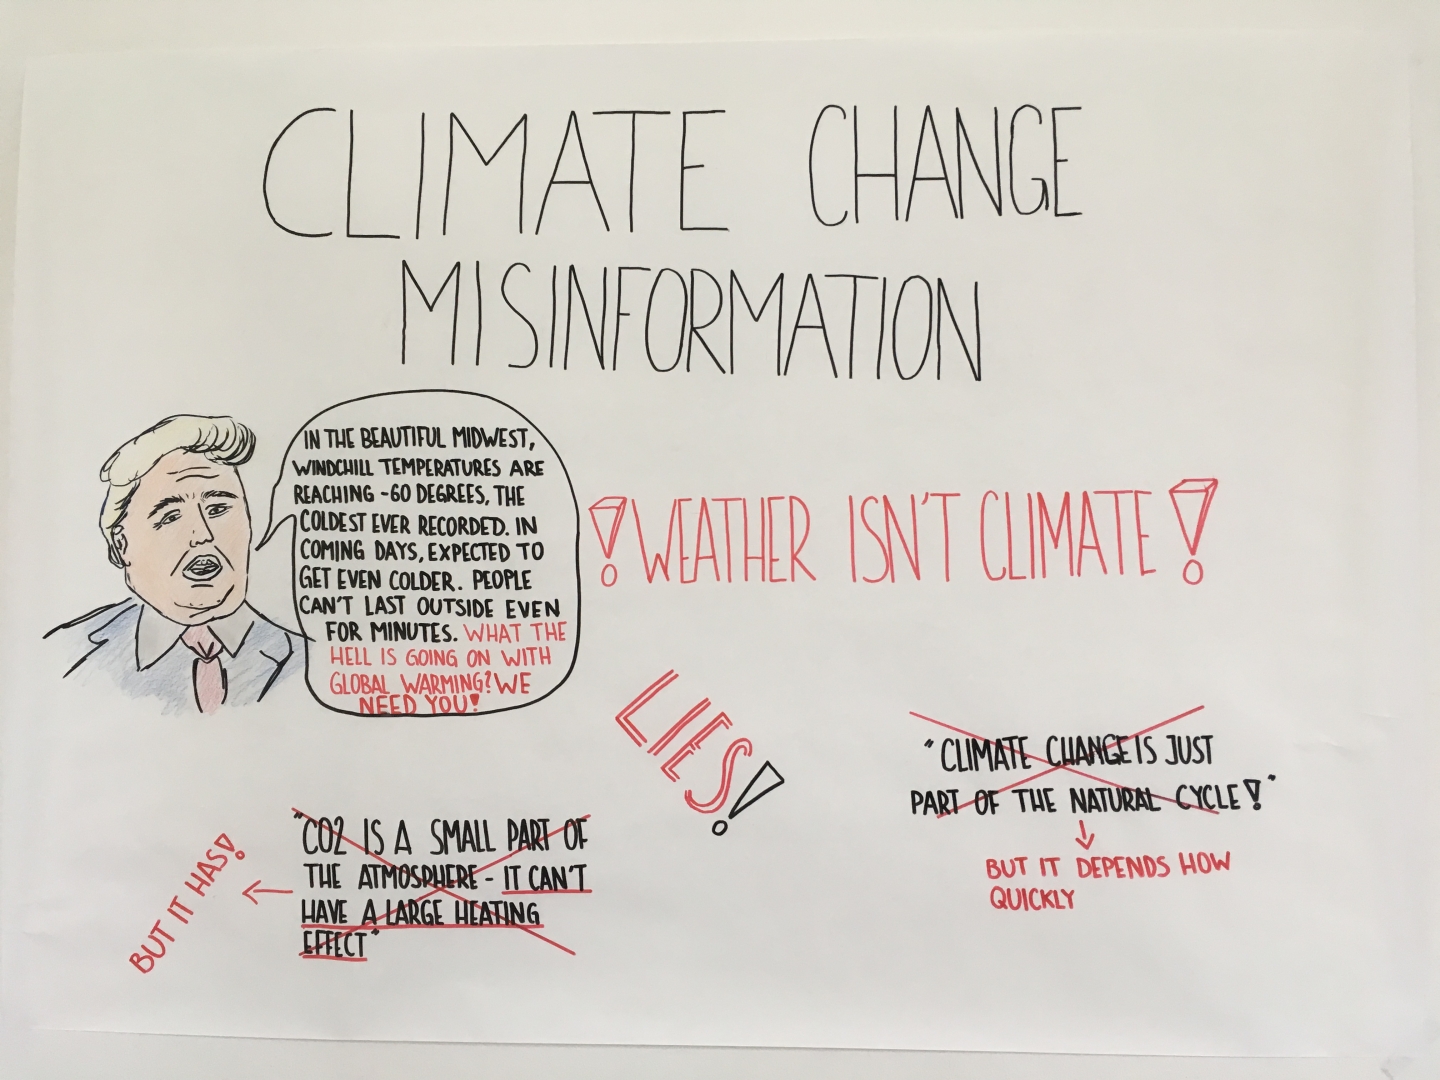 CLIMATE CHANGE
MISINFORMATION
IN THE BEAUTIFUL MIDWEST,
WINDCHILL TEMPERATURES ARE
REACHING -60 DEGREES, THE
COLDEST EVER RECORDED. IN
COMING DAYS, EXPECTED TO
GET EVEN COLDER. PEOPLE
CAN'T LAST OUTSIDE EVEN
FOR MINUTES. WHAT THE
HELL IS GOING ON WITH
GLOBAL WARMING? WE
NEED YOU!
! WEATHER ISN'T CLIMATE !
LIES!
"CLIMATE CHANGE IS JUST
PART OF THE NATURAL CYCLE!"
BUT IT DEPENDS HOW
QUICKLY
"CO2 IS A SMALL PART OF
THE ATMOSPHERE - IT CAN'T
HAVE A LARGE HEATING
EFFECT"
BUT IT HAS!